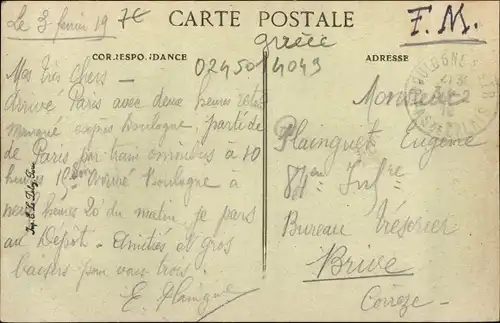 Le 3 février 19
7€
CARTE POSTALE
F.M.
grèce
CORRESPONDANCE
ADRESSE
02450 4049
BOULOGNE
PAS DE CALAIS
Mes très chers —
Arrivé Paris avec deux heures retard
manqué express Boulogne, parti de
de Paris par train omnibus à 10
heures 15 arrivé Boulogne à
neuf heures 20 du matin, je pars
au Dépôt. Amitiés et gros
baisers pour vous trois.
E. Plainguet
Monsieur
Plainguet Eugène
Bureau trésorier
Brive
Corrèze